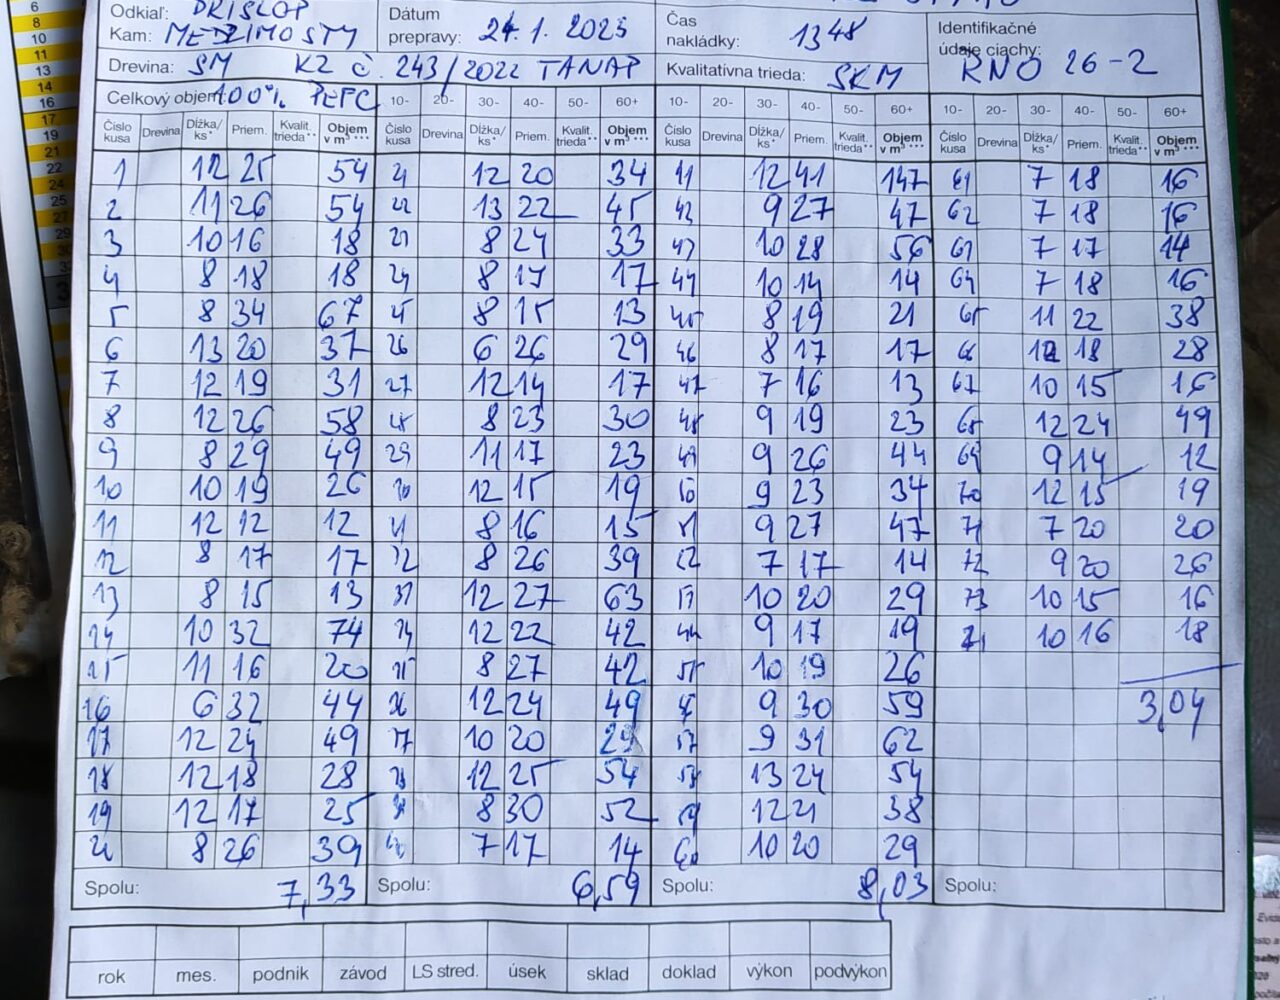 6
8
10
11
13
14
16
17
19
21
22
24
25
27
29
Odkiaľ: PRISLOP
Kam: MEDZIMOSTY
Dátum prepravy: 24.1. 2025
Čas nakládky: 13 48
Identifikačné údaje ciachy: RNO 26-2
Drevina: SM KZ č. 243/2022 TANAP
Kvalitatívna trieda: SKM
Celkový objem 100% PEFC 10- 20- 30- 40- 50- 60+ 10- 20- 30- 40- 50- 60+ 10- 20- 30- 40- 50- 60+
Číslo kusa Drevina Dĺžka/ks* Priem. Kvalit. trieda** Objem v m³*** Číslo kusa Drevina Dĺžka/ks* Priem. Kvalit. trieda** Objem v m³*** Číslo kusa Drevina Dĺžka/ks* Priem. Kvalit. trieda** Objem v m³*** Číslo kusa Drevina Dĺžka/ks* Priem. Kvalit. trieda** Objem v m³***
1 12 25 54 21 12 20 34 41 12 41 147 61 7 18 16
2 11 26 54 22 13 22 45 42 9 27 47 62 7 18 16
3 10 16 18 23 8 24 33 43 10 28 56 63 7 17 14
4 8 18 18 24 8 17 17 44 10 14 14 64 7 18 16
5 8 34 67 25 8 15 13 45 8 19 21 65 11 22 38
6 13 20 37 26 6 26 29 46 8 17 17 66 12 18 28
7 12 19 31 27 12 14 17 47 7 16 13 67 10 15 16
8 12 26 58 28 8 23 30 48 9 19 23 68 12 24 49
9 8 29 49 29 11 17 23 49 9 26 44 69 9 14 12
10 10 19 26 30 12 15 19 50 9 23 34 70 12 15 19
11 12 12 12 31 8 16 15 51 9 27 47 71 7 20 20
12 8 17 17 32 8 26 39 52 7 17 14 72 9 20 26
13 8 15 13 33 12 27 63 53 10 20 29 73 10 15 16
14 10 32 74 34 12 22 42 54 9 17 19 74 10 16 18
15 11 16 20 35 8 27 42 55 10 19 26
16 6 32 44 36 12 24 49 56 9 30 59 3,04
17 12 24 49 37 10 20 29 57 9 31 62
18 12 18 28 38 12 25 54 58 13 24 54
19 12 17 25 39 8 30 52 59 12 21 38
20 8 26 39 40 7 17 14 60 10 20 29
Spolu: 7,33 Spolu: 6,59 Spolu: 8,03 Spolu:
rok mes. podnik závod LS stred. úsek sklad doklad výkon podvýkon